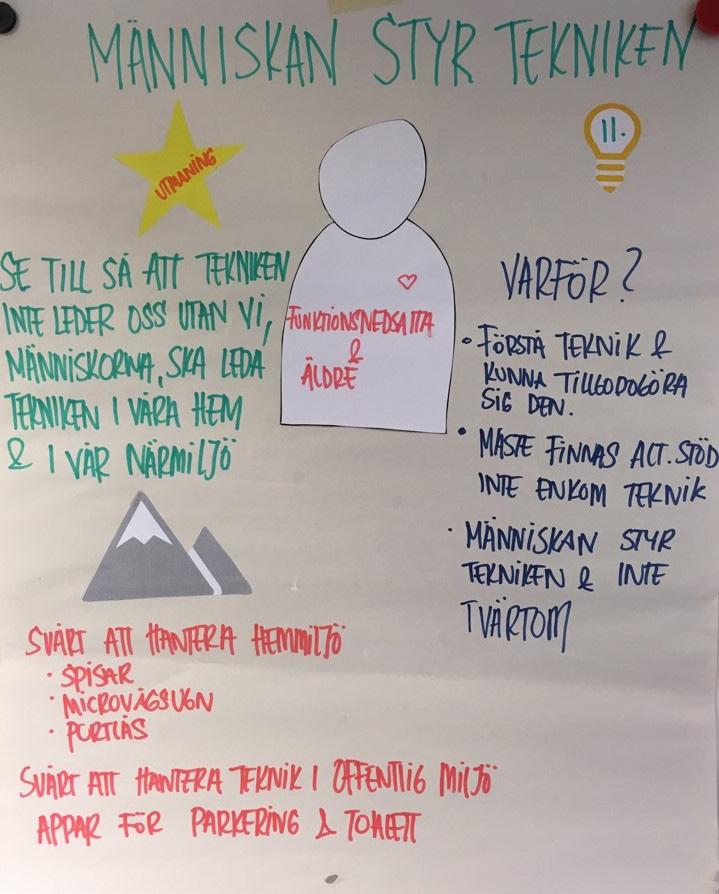 MÄNNISKAN STYR TEKNIKEN
UTMANING
11.
SE TILL SÅ ATT TEKNIKEN
INTE LEDER OSS UTAN VI,
MÄNNISKORNA, SKA LEDA
TEKNIKEN I VÅRA HEM
& I VÅR NÄRMILJÖ
FUNKTIONSNEDSATTA
&
ÄLDRE
VARFÖR?
• FÖRSTÅ TEKNIK &
KUNNA TILLGODOGÖRA
SIG DEN.
• MÅSTE FINNAS ALT. STÖD
INTE ENKOM TEKNIK
• MÄNNISKAN STYR
TEKNIKEN & INTE
TVÄRTOM
SVÅRT ATT HANTERA HEMMILJÖ
• SPISAR
• MICROVÅGSUGN
• PORTLÅS
SVÅRT ATT HANTERA TEKNIK I OFFENTLIG MILJÖ
APPAR FÖR PARKERING & TOALETT